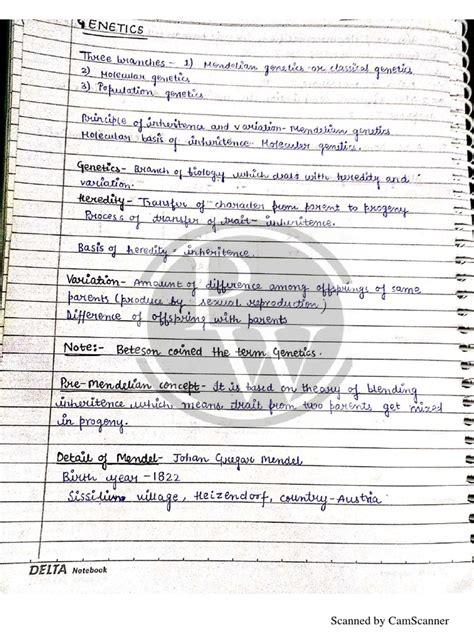 GENETICS
Three branches - 1) Mendelian genetics or classical genetics
2) Molecular genetics
3) Population genetics
Principle of inheritence and variation - Mendelian genetics
Molecular basis of inheritence - Molecular genetics.
Genetics - Branch of biology which deals with heredity and
variation.
Heredity - Transfer of character from parent to progeny
Process of transfer of trait - inheritence.
Basis of heredity - inheritence.
Variation - Amount of difference among offsprings of same
parents (produce by sexual reproduction)
Difference of offspring with parents
Note:- Beteson coined the term Genetics.
Pre-Mendelian concept - It is based on theory of blending
inheritence which means trait from two parents get mixed
in progeny.
Detail of Mendel - Johan Gregar Mendel
Birth year - 1822
village, Heizendorf, country - Austria
DELTA Notebook
Scanned by CamScanner